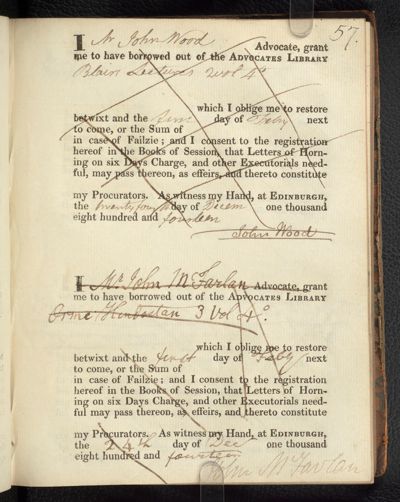 57.
I Mr John Wood Advocate, grant
me to have borrowed out of the ADVOCATES LIBRARY
Blair's Lectures 2 vol 4°
which I oblige me to restore
betwixt and the first day of Feby next
to come, or the Sum of
in case of Failzie; and I consent to the registration
hereof in the Books of Session, that Letters of Horn-
ing on six Days Charge, and other Executorials need-
ful, may pass thereon, as effeirs, and thereto constitute
my Procurators. As witness my Hand, at EDINBURGH,
the twenty fourth day of Decem one thousand
eight hundred and fourteen
John Wood
I Mr John McFarlan Advocate, grant
me to have borrowed out of the ADVOCATES LIBRARY
Orme Hindostan 3 Vol 4°.
which I oblige me to restore
betwixt and the first day of Feby next
to come, or the Sum of
in case of Failzie; and I consent to the registration
hereof in the Books of Session, that Letters of Horn-
ing on six Days Charge, and other Executorials need-
ful may pass thereon, as effeirs, and thereto constitute
my Procurators. As witness my Hand, at EDINBURGH,
the 24th day of Dec one thousand
eight hundred and fourteen
John McFarlan